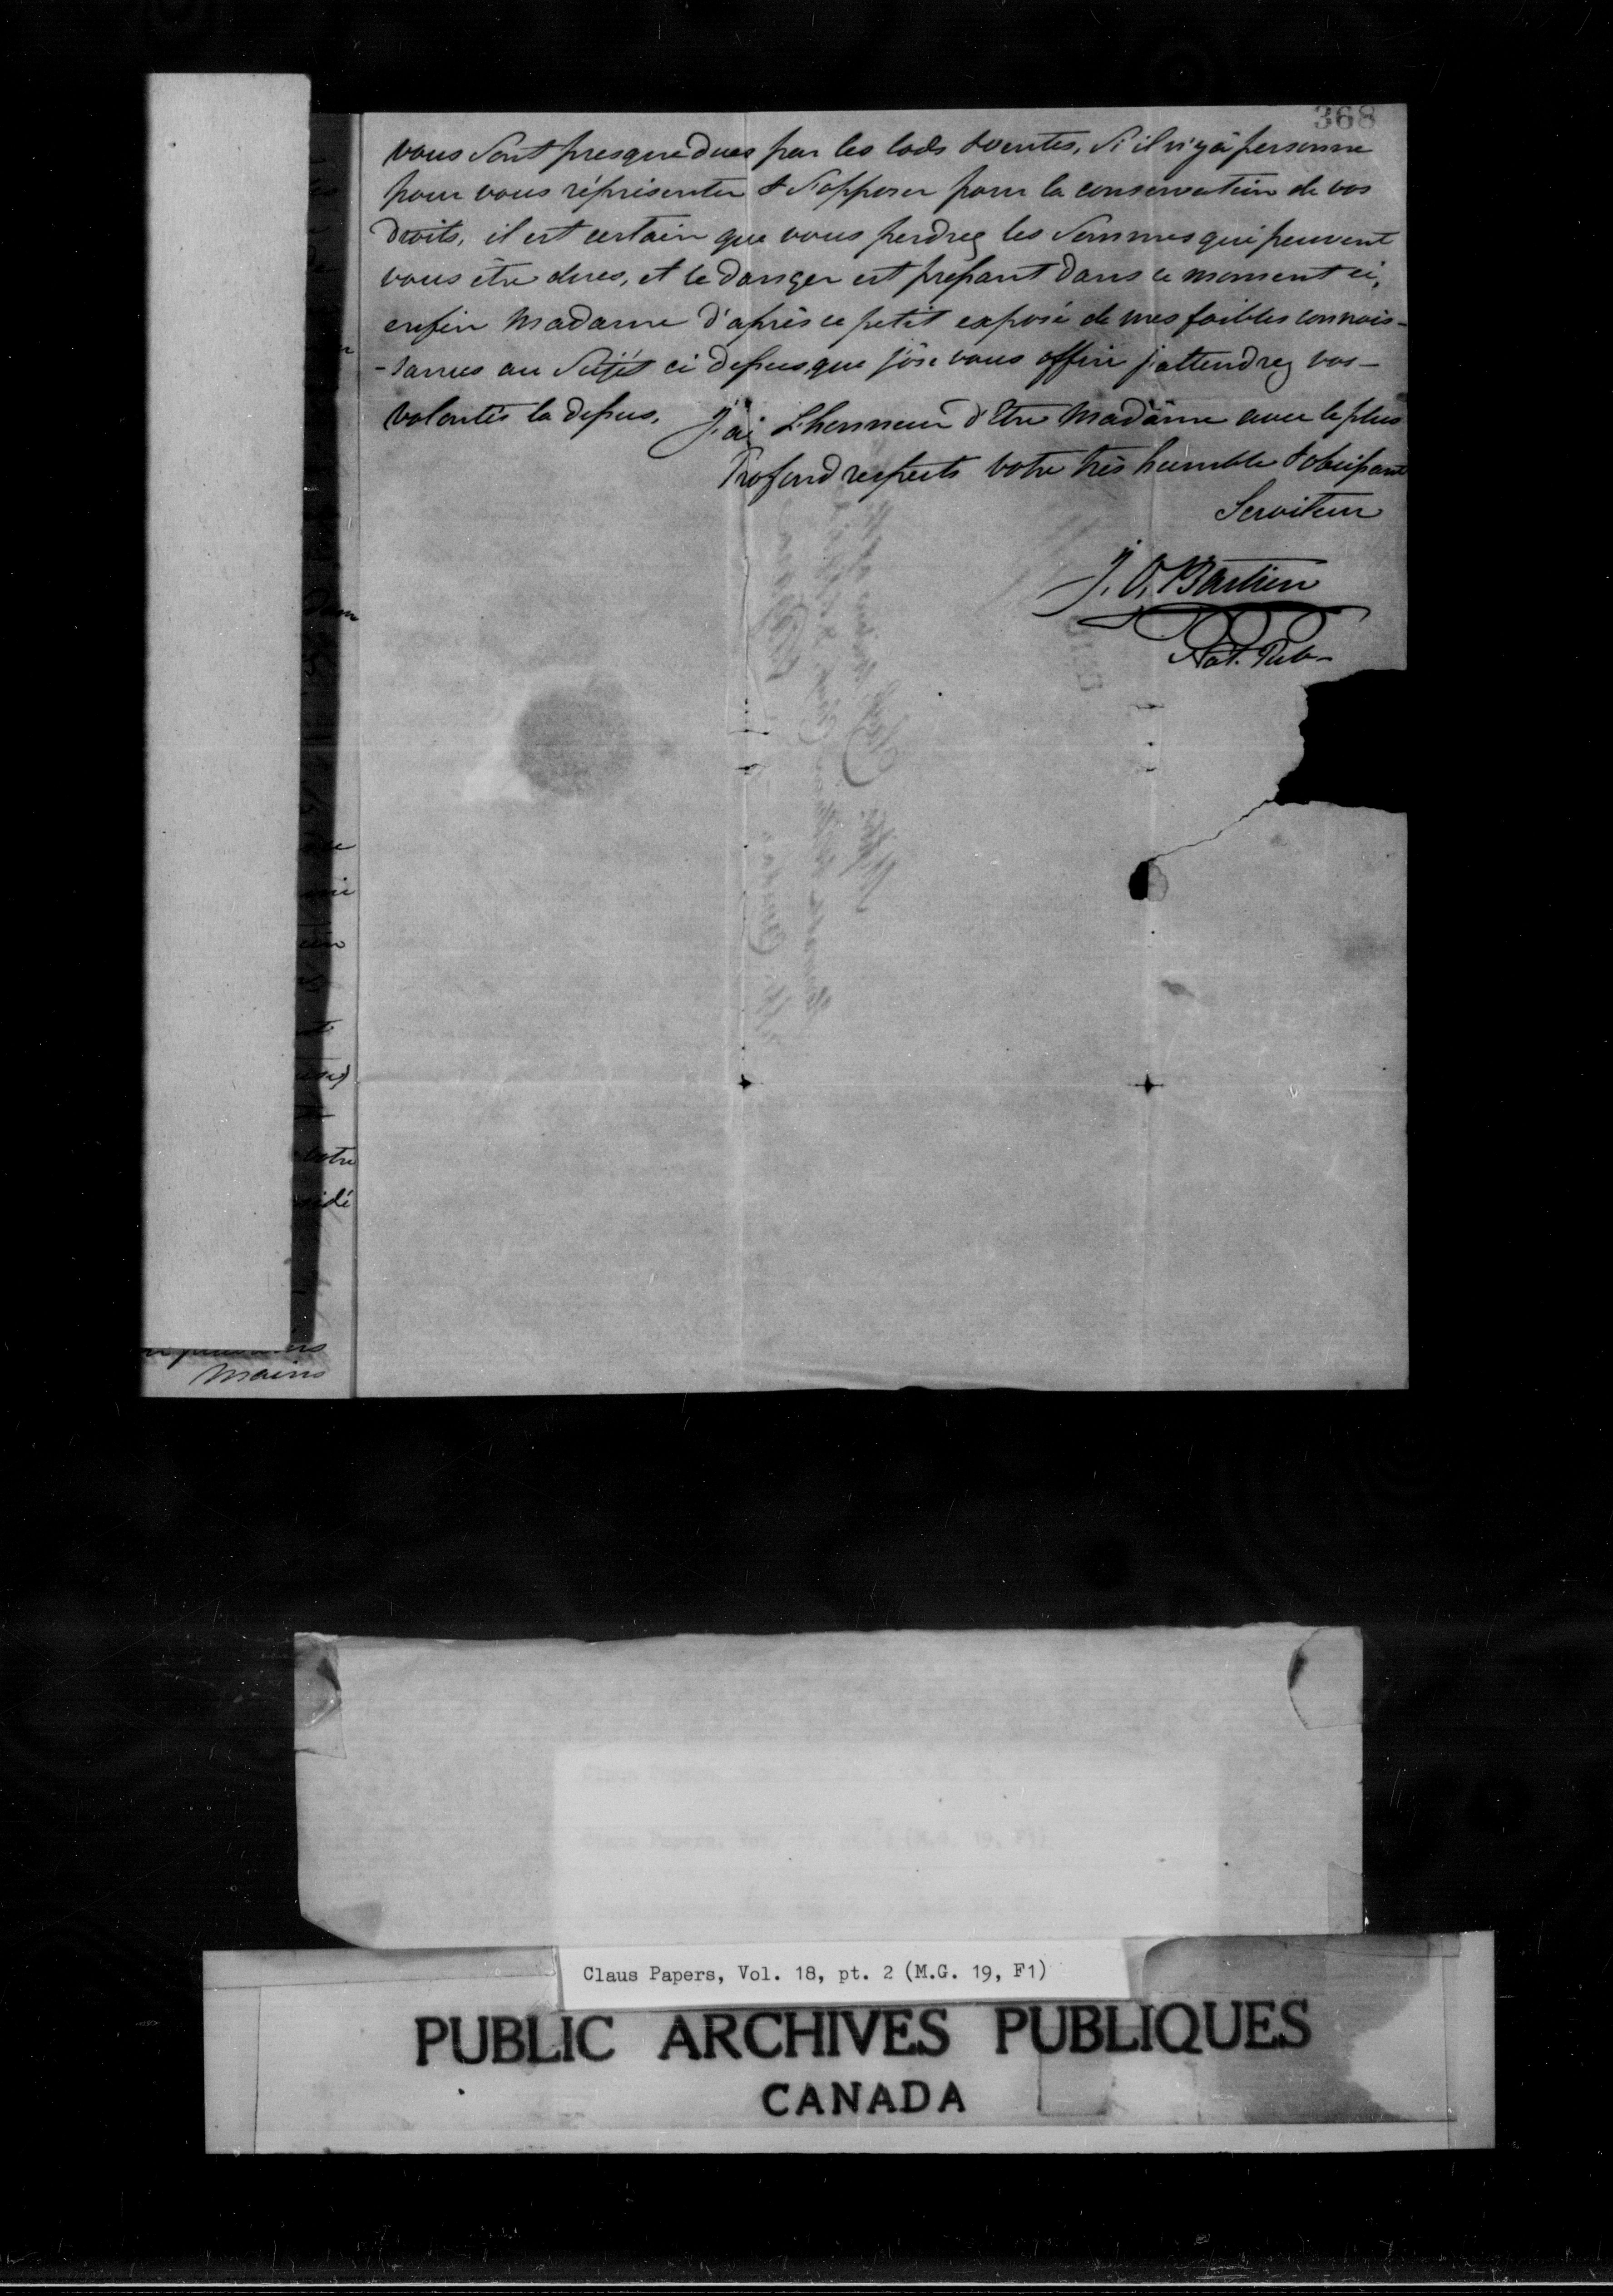 368
vous sont presque dues par les lods & ventes, Si il n'y a personne
pour vous réprésenter & S'opposer pour la conservation de vos
Droits, il est certain que vous perdrez les Sommes qui peuvent
vous être dues, et le danger est préssant dans ce moment ci,
enfin Madame d'après ce petit exposé de mes foibles connois-
-sances au Sujét ci dessus, que j'ôse vous offrir j'attendrez vos-
volontés la dessus.
J'ai L'honneur d'Etre Madâme avec le plus
Profond respects votre très humble & obeissant
Serviteur
J. O. Bastien
Not. Pub-
votre
mains
Claus Papers, Vol. 18, pt. 2 (M.G. 19, F1)
PUBLIC ARCHIVES PUBLIQUES
CANADA